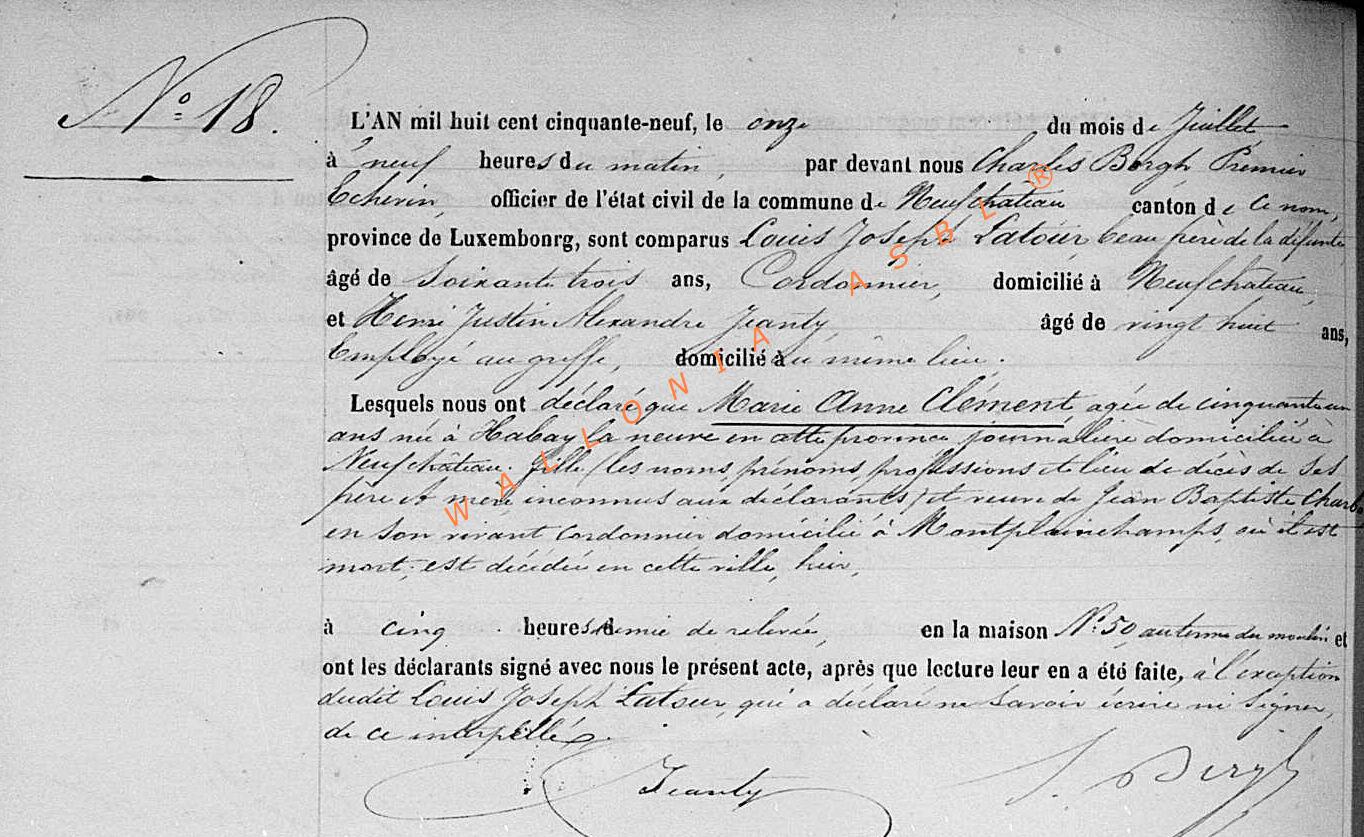 N° 18.
L'AN mil huit cent cinquante-neuf, le onze du mois de Juillet
à neuf heures du matin, par devant nous Charles Bergh Premier
Echevin, officier de l'état civil de la commune de Neufchâteau canton de ce nom,
province de Luxembonrg, sont comparus Louis Joseph Latour, beau père de la défunte
âgé de soixante trois ans, Cordonnier, domicilié à Neufchâteau,
et Henri Justin Alexandre Jeanty, âgé de vingt huit ans,
Employé au greffe, domicilié à au même lieu.
Lesquels nous ont déclaré que Marie Anne Clément agée de cinquante un
ans née à Habay la neuve en cette province journalière domiciliée à
Neufchâteau. fille (les noms, prénoms, professions et lieu de décès de ses
père et mère inconnus aux déclarants) et veuve de Jean Baptiste
en son vivant cordonnier domicilié à Montplainchamps, où il est
mort, est décédée en cette ville, hier,
à cinq heures demie de relevée, en la maison N° 50, au terme du moulin et
ont les déclarants signé avec nous le présent acte, après que lecture leur en a été faite, à l'exception
dudit Louis Joseph Latour, qui a déclaré ne savoir écrire ni signer,
de ce interpellé.
Jeanty Bergh
WALLONIA ASBL ®